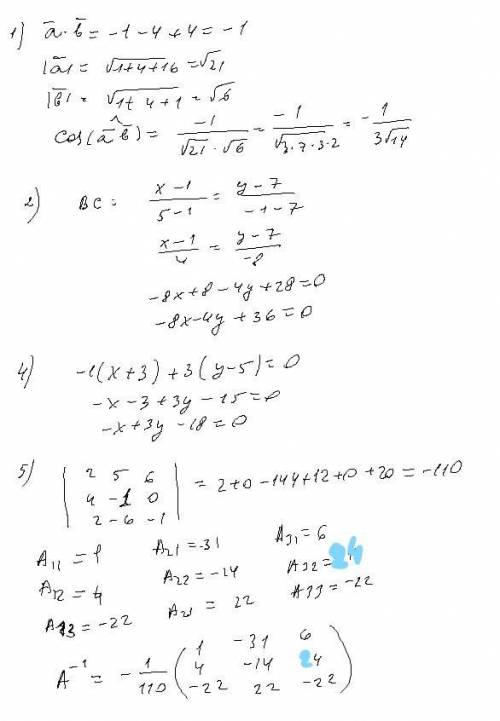 1) a̅·b̅ = -1-4+4 = -1
|a̅| = √1+4+16 = √21
|b̅| = √1+4+1 = √6
cos(a̅ ^ b̅) = -1/(√21·√6) = -1/√3·7·3·2 = -1/(3√14)
2) BC: (x-1)/(5-1) = (y-7)/(-1-7)
(x-1)/4 = (y-7)/-8
-8x+8-4y+28=0
-8x-4y+36=0
4) -1(x+3)+3(y-5)=0
-x-3+3y-15=0
-x+3y-18=0
5) | 2 5 6 | = 2+0-144+12+0+20 = -110
4 -1 0
2 -6 -1
A11 = 1 A21 = -31 A31 = 6
A12 = 4 A22 = -14 A32 = 24
A13 = -22 A23 = 22 A33 = -22
A⁻¹ = -1/110 ( 1 -31 6
4 -14 24
-22 22 -22 )